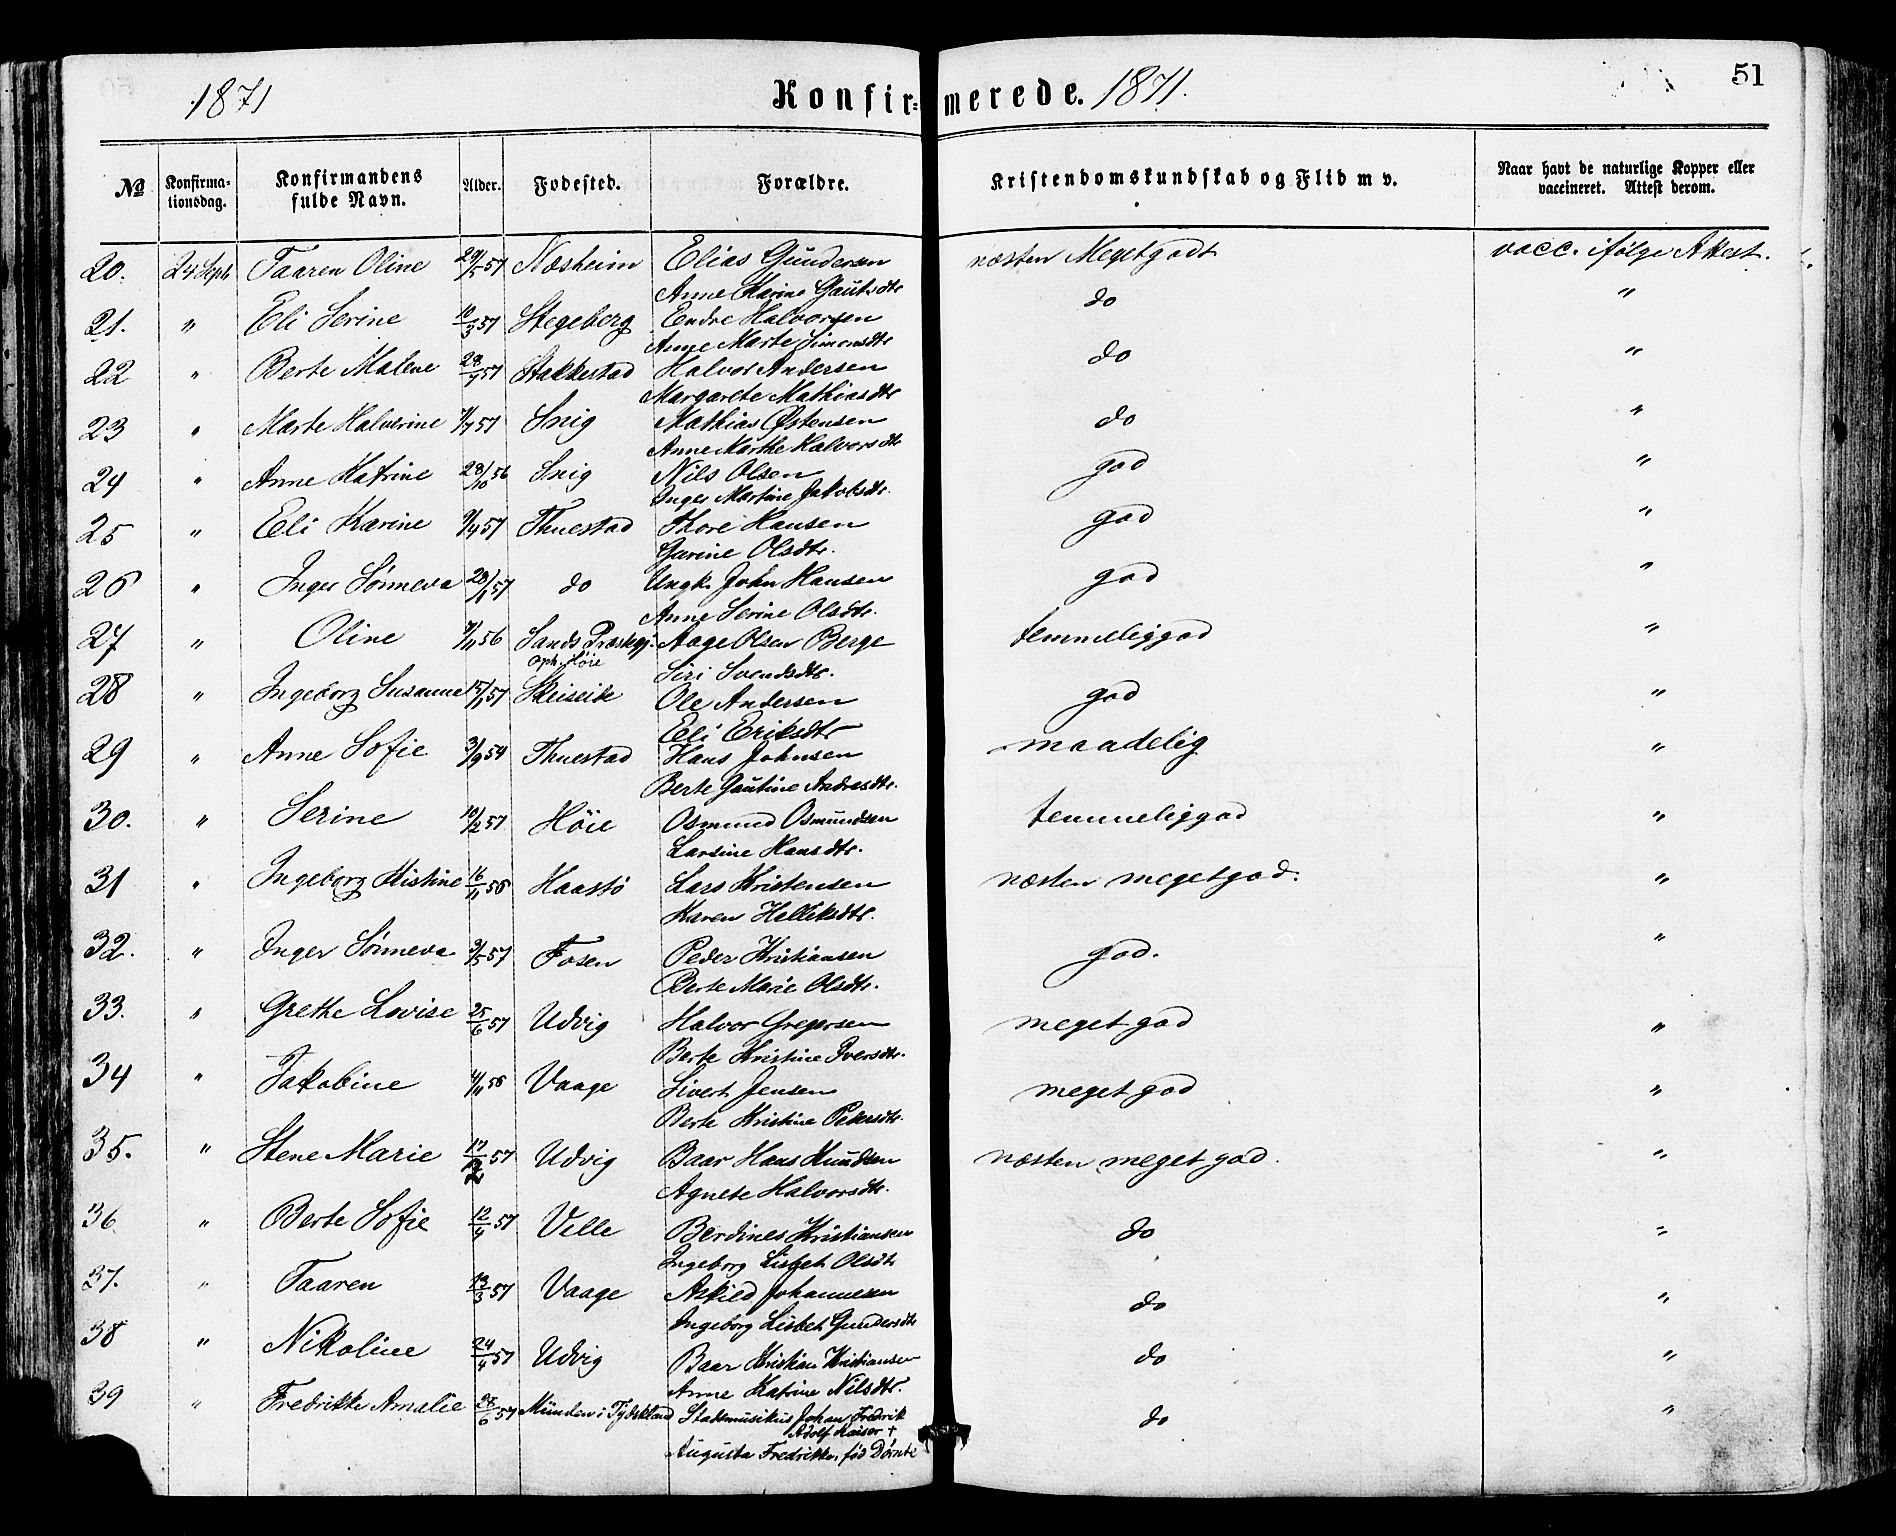 1871 Konfirmerede. 1871. 51
№ Konfirmationsdag. Konfirmandens fulde Navn. Alder. Fodested. Forældre. Kristendomskundskab og Flid m v. Naar havt de naturlige Kopper eller vaccineret. Attest derom.
20. 24 Septb Taaren Oline 29/5 57 Næsheim Elias Gundersen næsten Megetgodt vacc. ifølge Attest.
Anne Karine Gautsdtr
21. " Eli Serine 10/3 57 Stegeberg Endre Halvorsen do "
Anne Marte Simonsdtr
22 " Berte Malene 28/7 57 Stakkestad Halvor Andersen do "
Margarete Mathiasdtr
23 " Marte Halverine 57 Snig Mathias Østensen do "
Anne Marthe Halvorsdtr
24 " Anne Katrine 28/10 56 Snig Nils Olsen god "
Inger Martine Jakobsdtr.
25 " Eli Karine 9/4 57 Thuestad Thore Hansen god "
Garine Olsdtr.
26 " Inger Sønneva 28/1 57 do Ungk. John Hansen god "
Anne Serine Olsdtr.
27 " Oline 56 Sands Præstegj: Aage Olsen Berge temmeliggod "
oph. Høie
Siri Svendsdtr.
28 " Ingeborg Susanne 15/1 57 Skeiseide Ole Andersen god "
Eli Eriksdtr
29 " Anne Sofie 3/9 54 Thuestad Hans Johnsen maadelig "
Berte Gautine Andresdtr.
30. " Serine 10/2 57 Høie Osmund Osmundsen temmeliggod "
Larsine Hansdtr.
31 " Ingeborg Kistine 16/11 56 Haastø Lars Kristensen næsten megetgod. "
Karen Helliksdtr.
32. " Inger Sønneva 3/5 57 Fosen Peder Kristiansen god. "
Berte Marie Olsdtr.
33. " Grethe Lovise 25/6 57 Udvig Halvor Gregersen meget god "
Berte Kristine Iversdtr.
34 " Jakobine 4/11 56 Vaage Sivert Jensen meget god "
Berte Kristine Pedersdtr.
35. " Stene Marie 57 Udvig Baar Hans Knudsen næsten meget god. "
Agnete Halvorsdtr.
36 " Berte Sofie 12/4 57 Velle Berdines Kristiansen do "
Ingeborg Lisbet Olsdt
37. " Taaren 13/3 57 Vaage Askild Johannesen do "
Ingeborg Lisbet Gundersdtr
38 " Nikoline 24/4 57 Udvig Baar Kristian Kristiansen do "
Anne Katrine Nilsdtr.
39 " Fredrikke Amalie 28/6 57 Münden i Tydskland Stadsmusikus Johan Fredrik do "
Adolf Kaiser +
Augusta Fredrikke, fød Dørnte